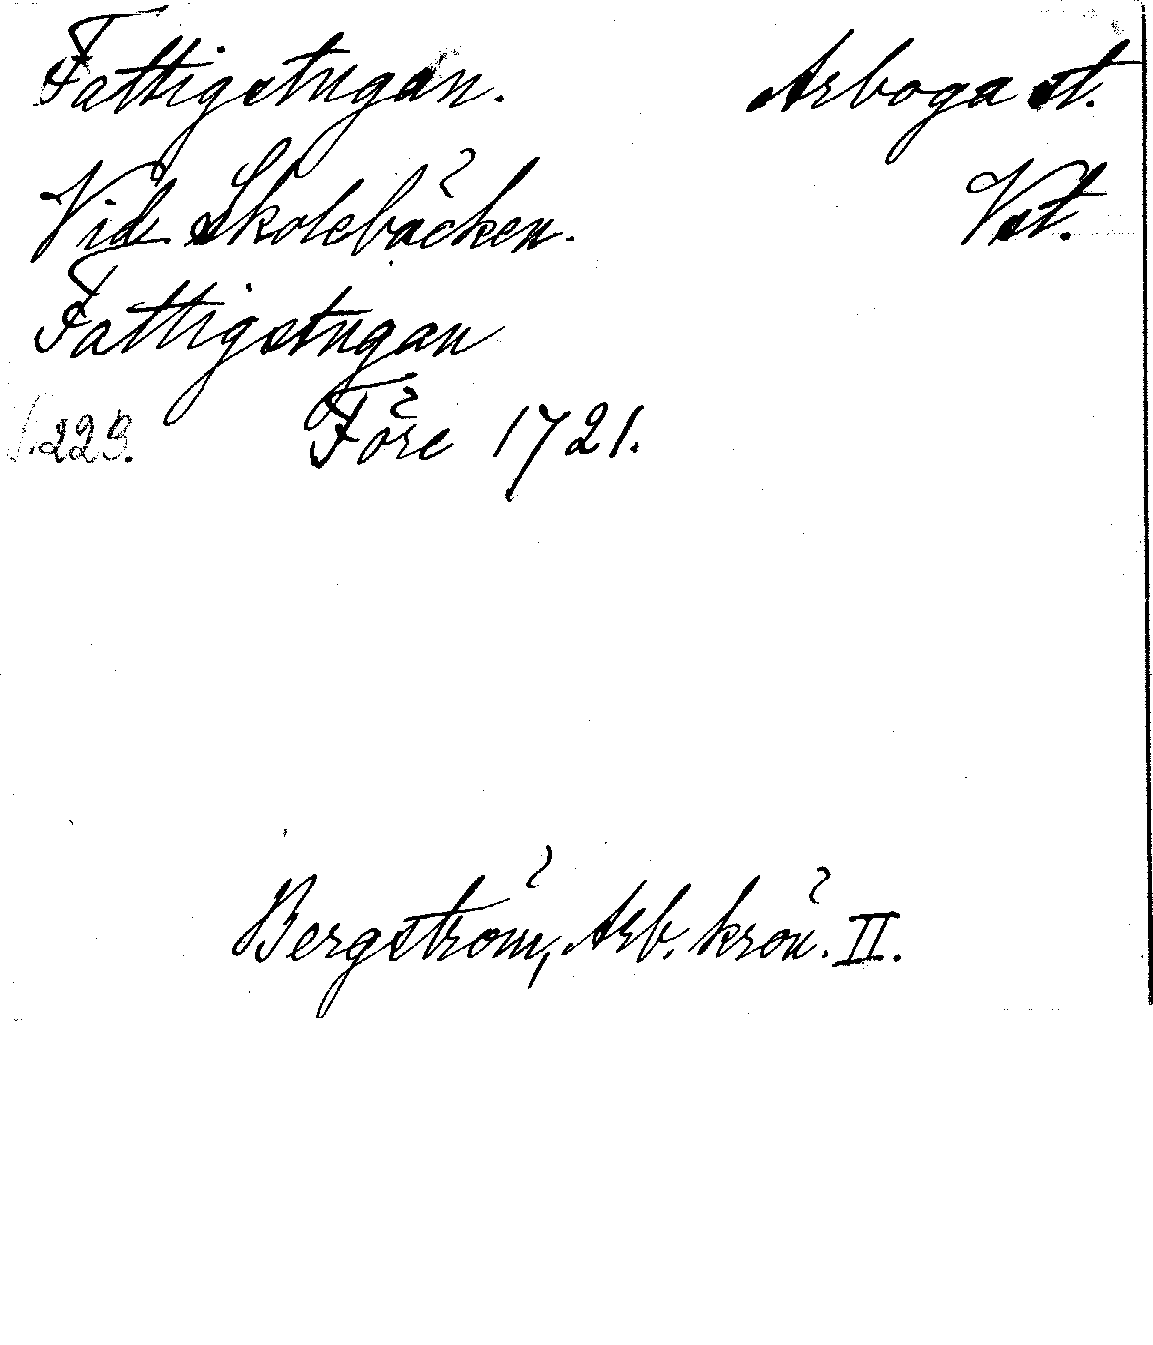 Fattigstugan. Arboga st.
Vid Skolebäcken. Vst.
Fattigstugan
s. 229. Före 1721.
Bergström, Arb. krön. II.